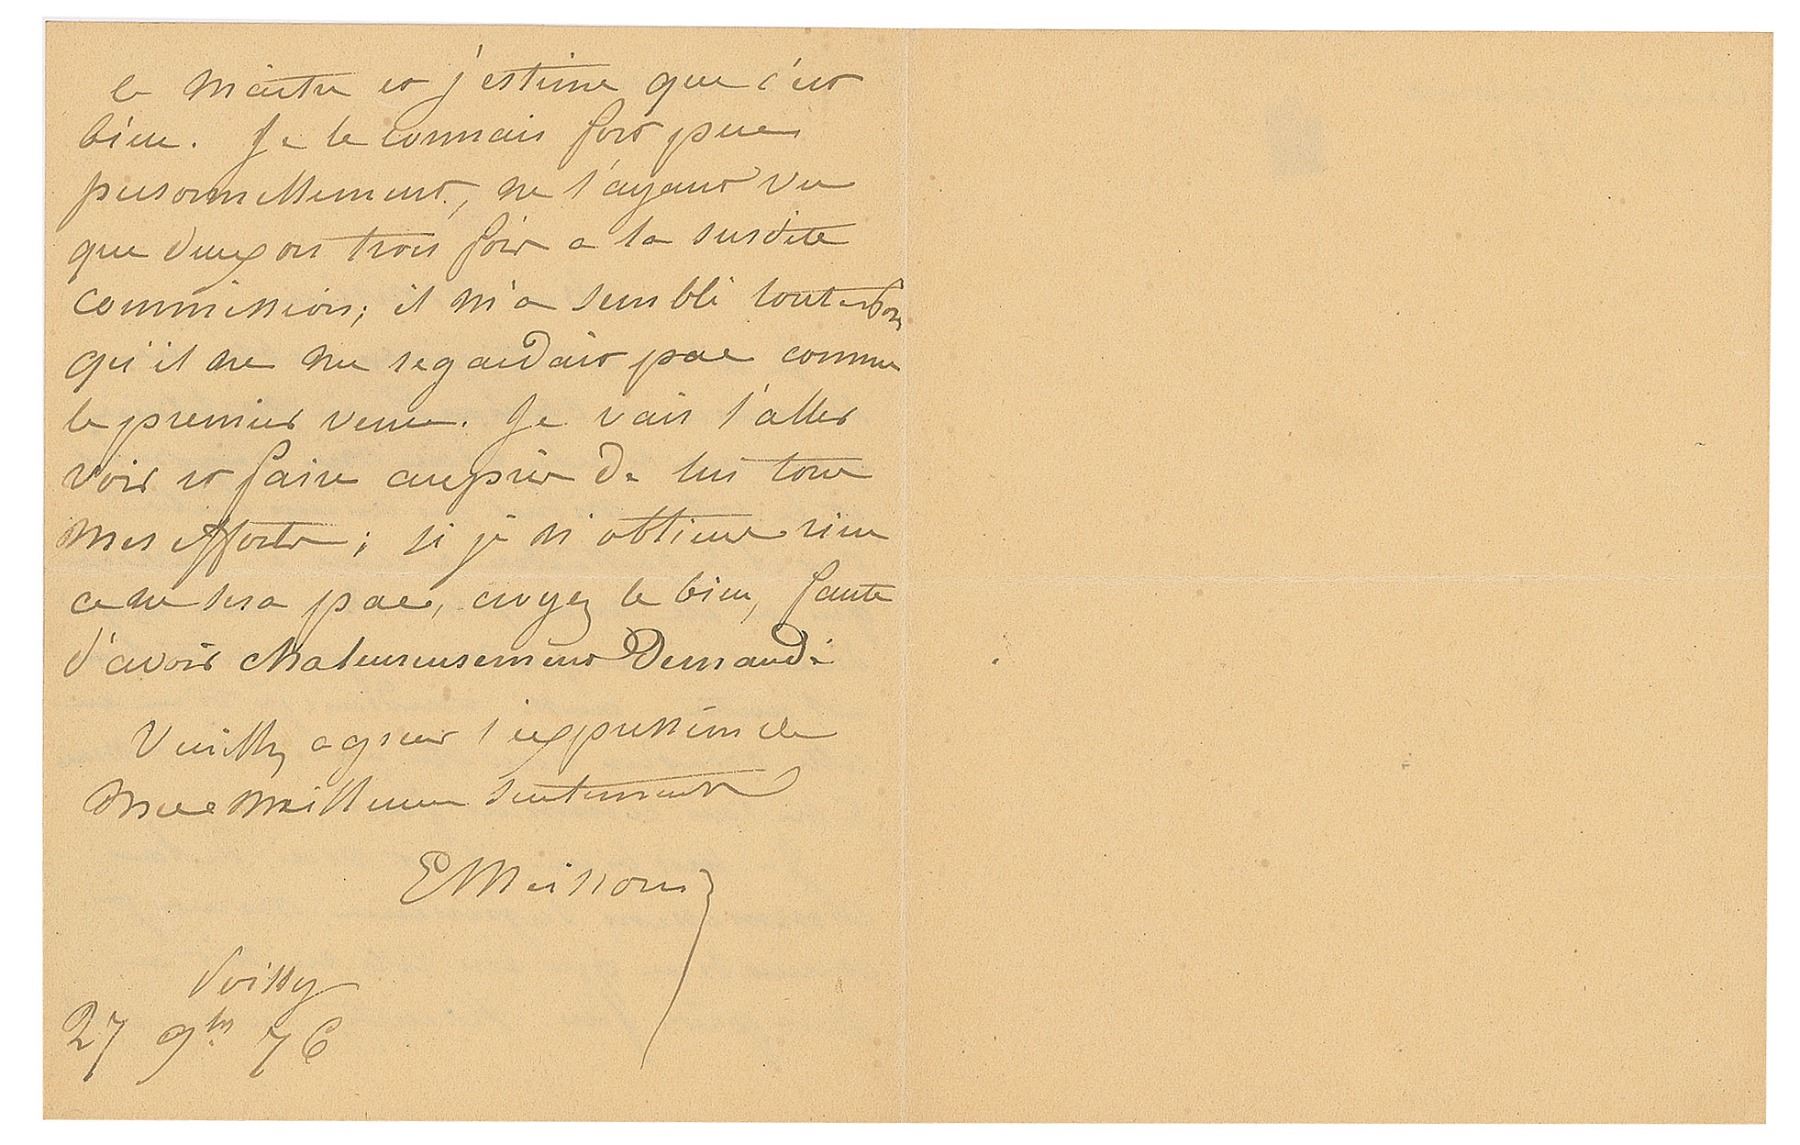 le maitre et j'estime que c'est
bien. Je le connais fort peu
personnellement, ne l'ayant vu
que deux ou trois fois a la susdite
commission; il m'a semblé toutefois
qu'il ne me regardait pas comme
le premier venu. Je vais l'aller
voir et faire auprès de lui tous
mes efforts; si je n'obtiens rien
ce ne sera pas, croyez le bien, faute
d'avoir chaleureusement demandé
Veuillez agréer l'expression de
mes meilleurs sentiments
EMeissonier
Poissy
27 9bre 76